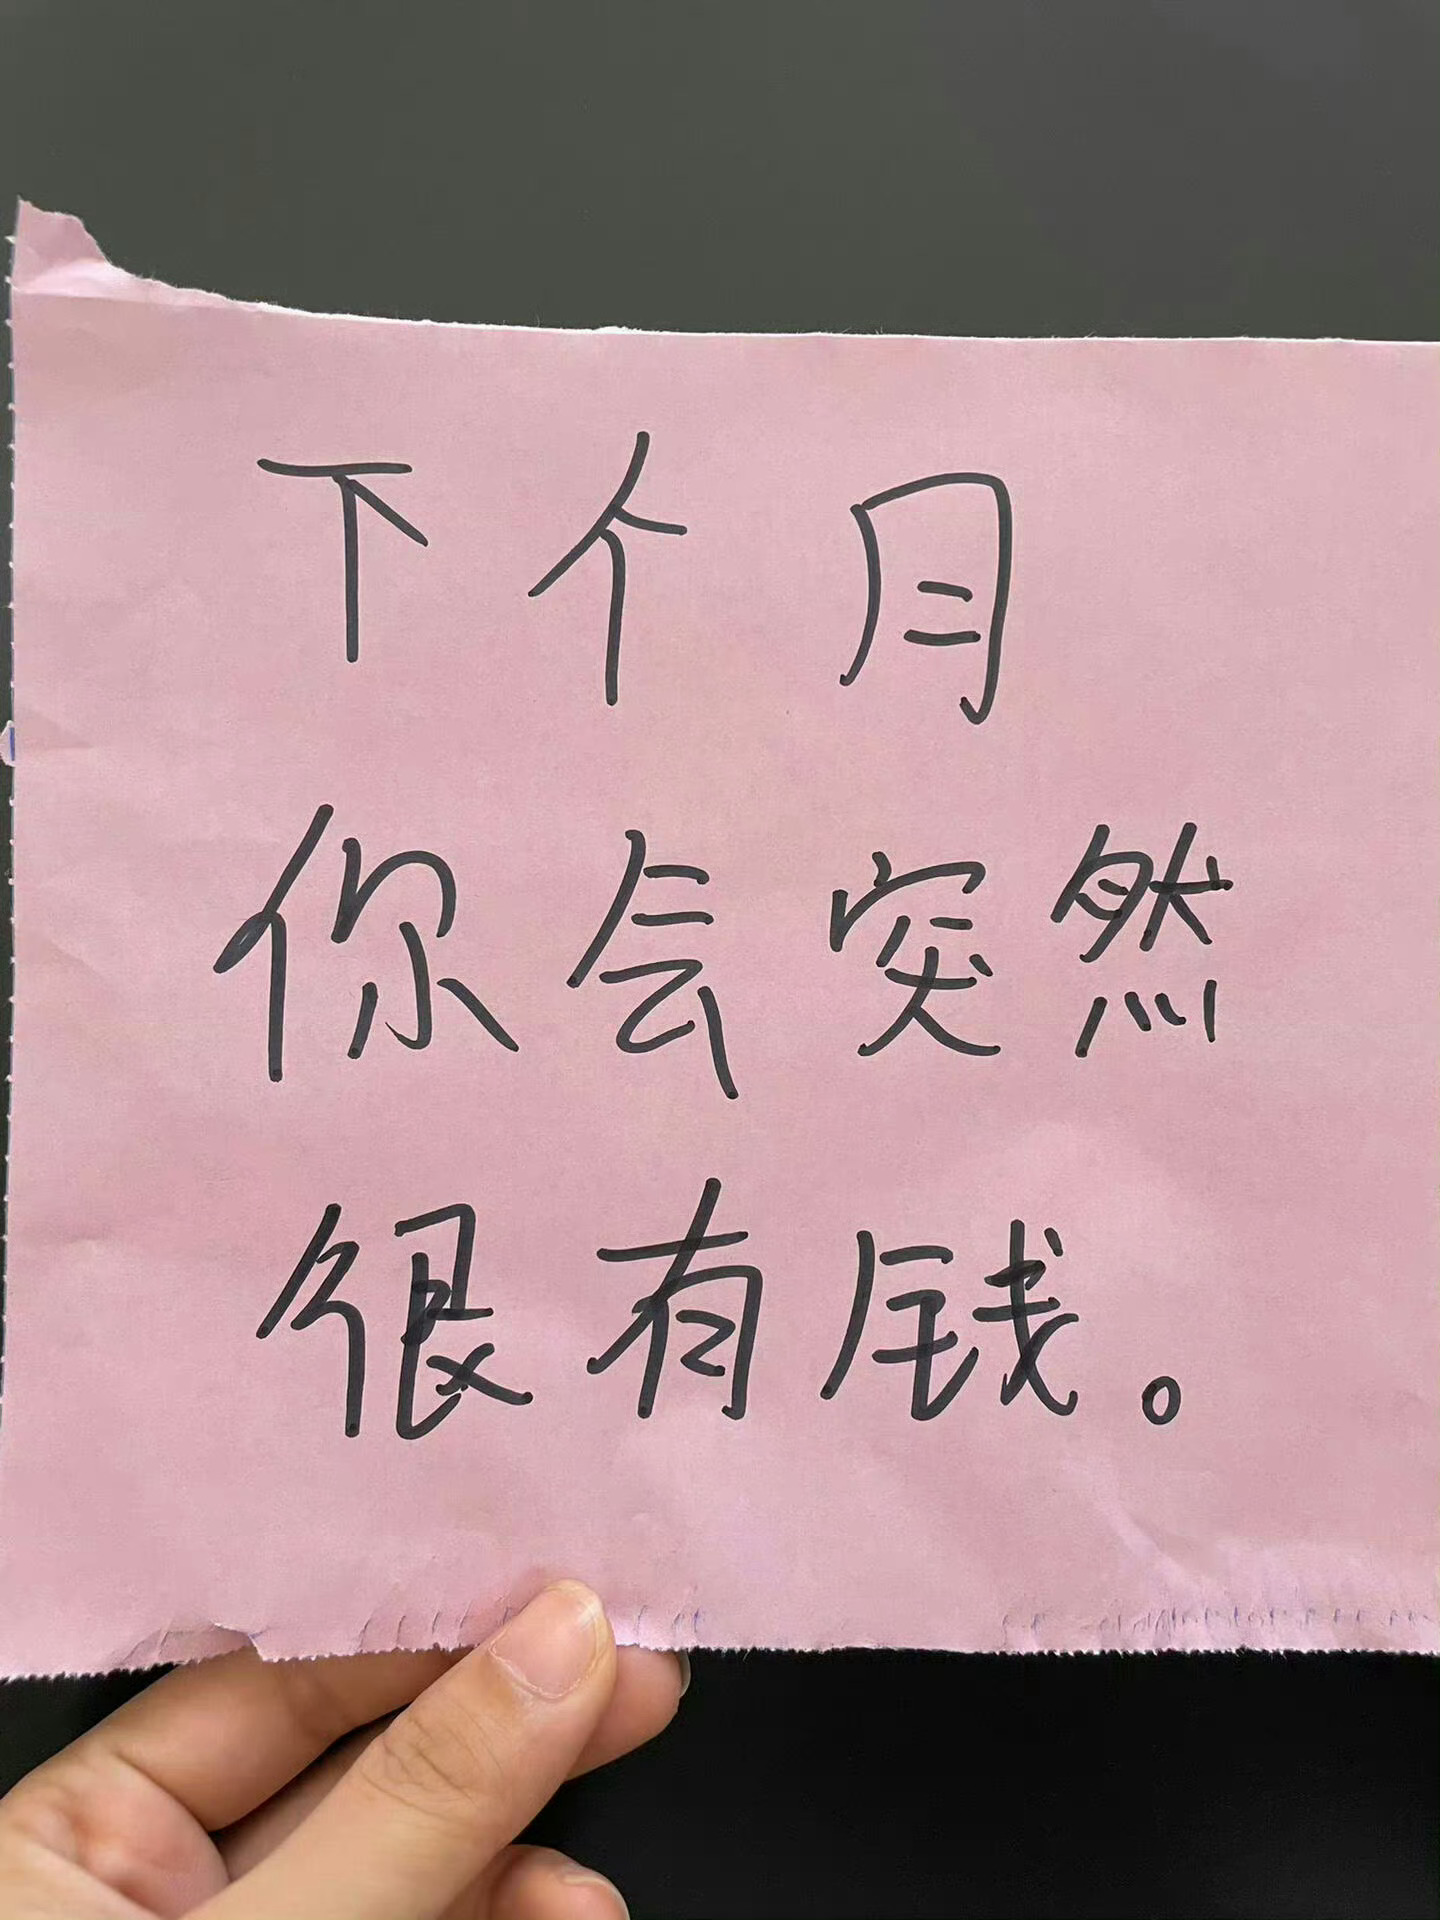 下个月
你会突然
很有钱。